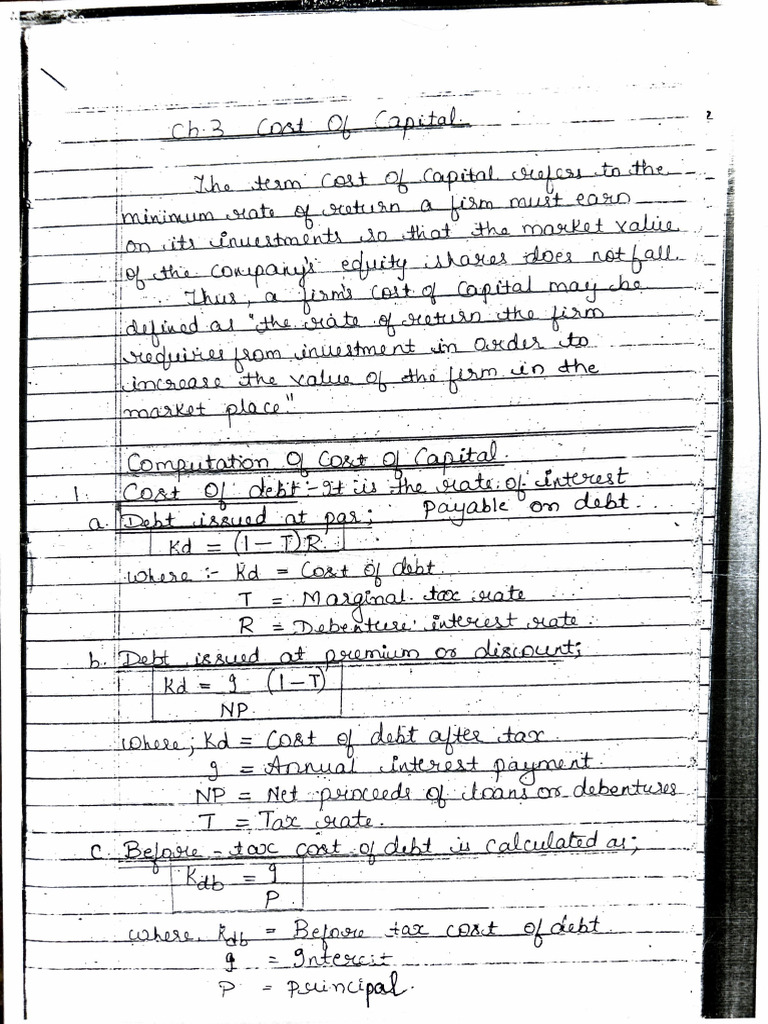 Ch.3 Cost Of Capital.
The term Cost Of Capital refers to the
minimum rate of return a firm must earn
on its investments so that the market value
of the company's equity shares does not fall.
Thus, a firm's cost of capital may be
defined as "the rate of return the firm
requires from investment in order to
increase the value of the firm in the
market place"
Computation Of Cost Of Capital.
1. Cost Of debt - It is the rate of interest
payable on debt.
a. Debt issued at par;
Kd = (1-T)R.
where :- Kd = Cost of debt.
T = Marginal tax rate
R = Debenture interest rate.
b. Debt issued at premium or discount;
Kd = I (1-T)
NP.
where; Kd = Cost of debt after tax
I = Annual interest payment.
NP = Net proceeds of loans or debentures
T = Tax rate.
c. Before-tax cost of debt is calculated as;
Kdb = I
P
where, Kdb = Before tax cost of debt
I = Interest
P = principal.